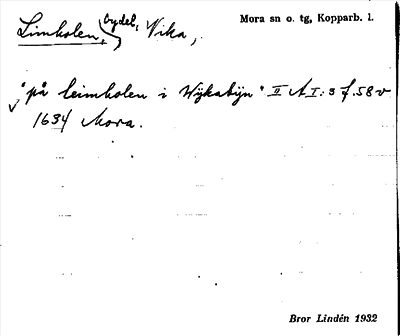 Limholen, bydel, Vika,
Mora sn o. tg, Kopparb. l.
"på leimholen i Wÿkabÿn" II A I:3 f.58v
1634 Mora.
Bror Lindén 1932